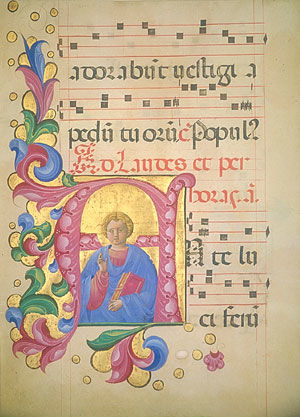 ador abūt vestigi a
pedū tu orū. Popul
Ad Laudes et per
horas. a.
A
N te lu
ci ferū